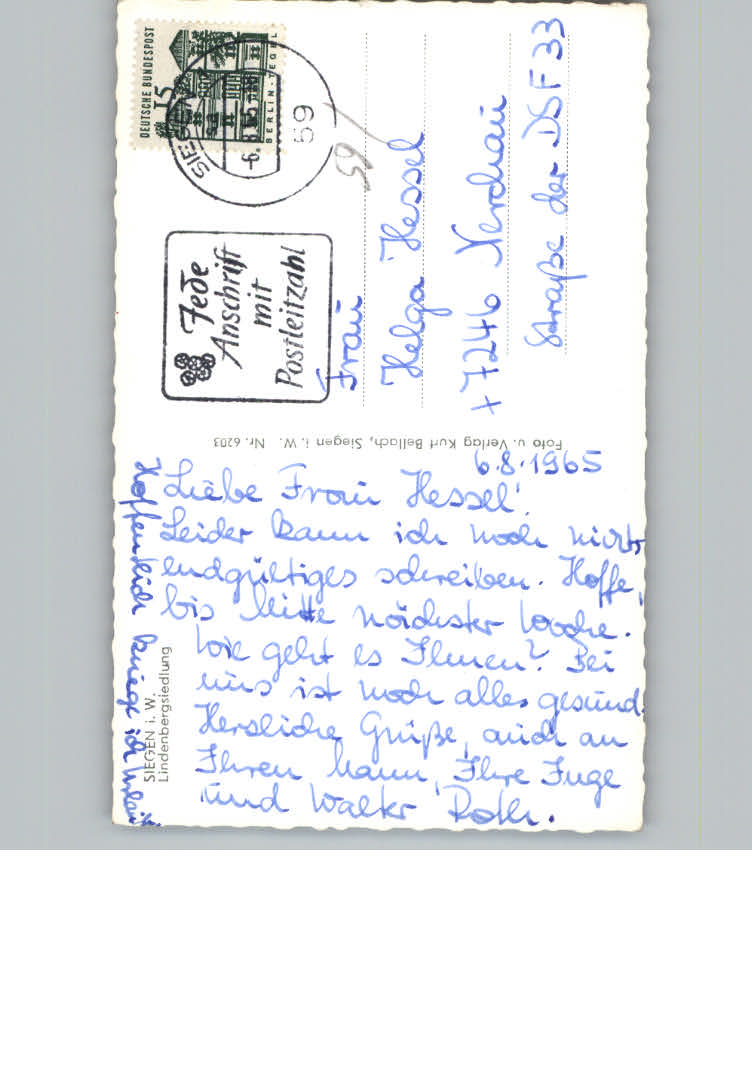 DEUTSCHE BUNDESPOST
15
BERLIN-TEGEL
SIEGEN
-6. 8. 65
59
59
Jede
Anschrift
mit
Postleitzahl
Frau
Helga Hessel
x 7246 Nerchau
Straße der DSF 33
Foto u. Verlag Kurt Bellach, Siegen i. W. Nr. 6203
6.8.1965
Liebe Frau Hessel!
Leider kann ich noch nichts
endgültiges schreiben. Hoffe,
bis Mitte nächster Woche.
Wie geht es Ihnen? Bei
uns ist noch alles gesund.
Herzliche Grüße, auch an
Ihren Mann, Ihre Inge
und Walter Roth.
Hoffentlich kriege ich Urlaub
SIEGEN i. W.
Lindenbergsiedlung